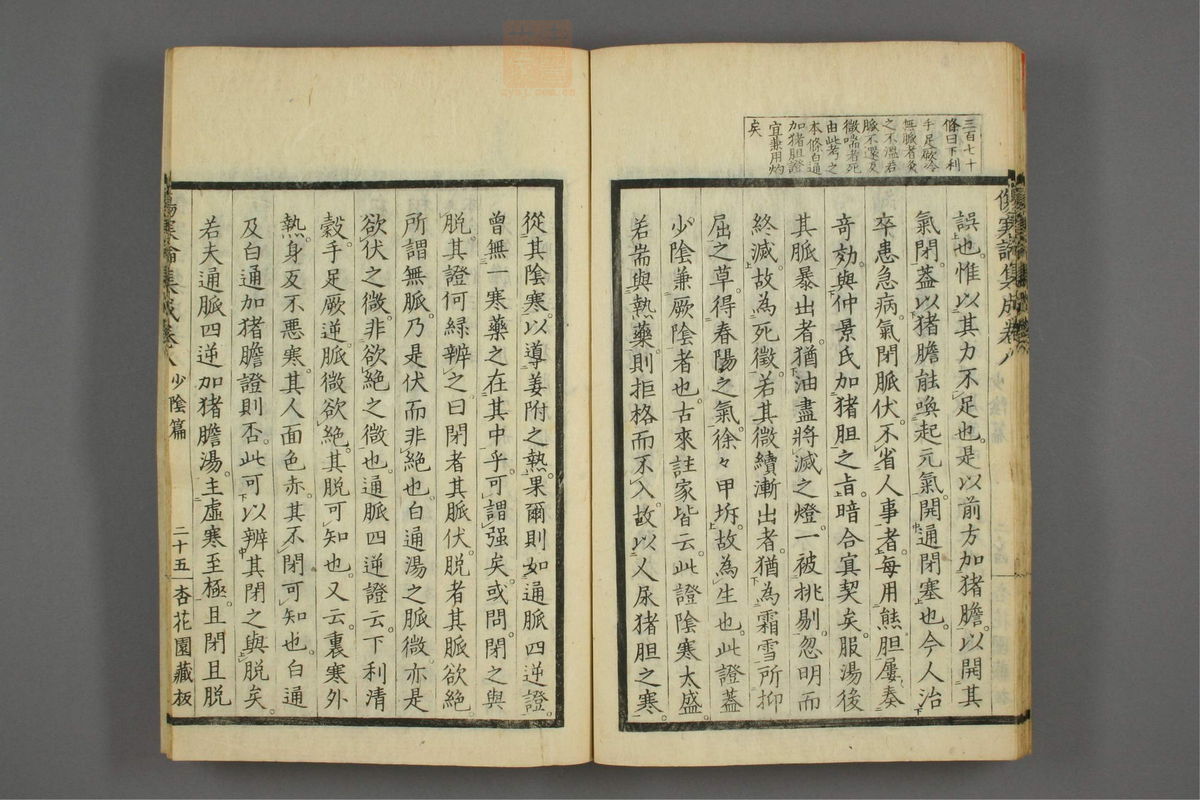 三百七十
條曰下利
手足厥冷
無脈者灸
之不溫若
脈不還反
微喘者死
由此考之
本條白通
加猪胆證
宜兼用灼
矣
誤也惟以其力不足也是以前方加猪膽以開其
氣閉蓋以猪膽能喚起元氣開通閉塞也今人治
卒患急病氣閉脈伏不省人事者每用熊胆屢奏
奇効與仲景氏加猪胆之旨暗合寘契矣服湯後
其脈暴出者猶油盡將滅之燈一被挑剔忽明而
終滅故為死徵若其微續漸出者猶為霜雪所抑
屈之草得春陽之氣徐々甲坼故為生也此證蓋
少陰兼厥陰者也古來註家皆云此證陰寒太盛
若耑與熱藥則拒格而不入故以人尿猪胆之寒
傷寒論集成卷八
從其陰寒以導姜附之熱果爾則如通脈四逆證
曾無一寒藥之在其中乎可謂强矣或問閉之與
脱其證何緑辨之曰閉者其脈伏脱者其脈欲絕
所謂無脈乃是伏而非絕也白通湯之脈微亦是
欲伏之微非欲絕之微也通脈四逆證云下利清
穀手足厥逆脈微欲絕其脱可知也又云裏寒外
熱身反不惡寒其人面色赤其不閉可知也白通
及白通加猪膽證則否此可以辨其閉之與脱矣
若夫通脈四逆加猪膽湯主虛寒至極且閉且脱
傷寒論集成卷八 少陰篇 二十五 杏花園藏板